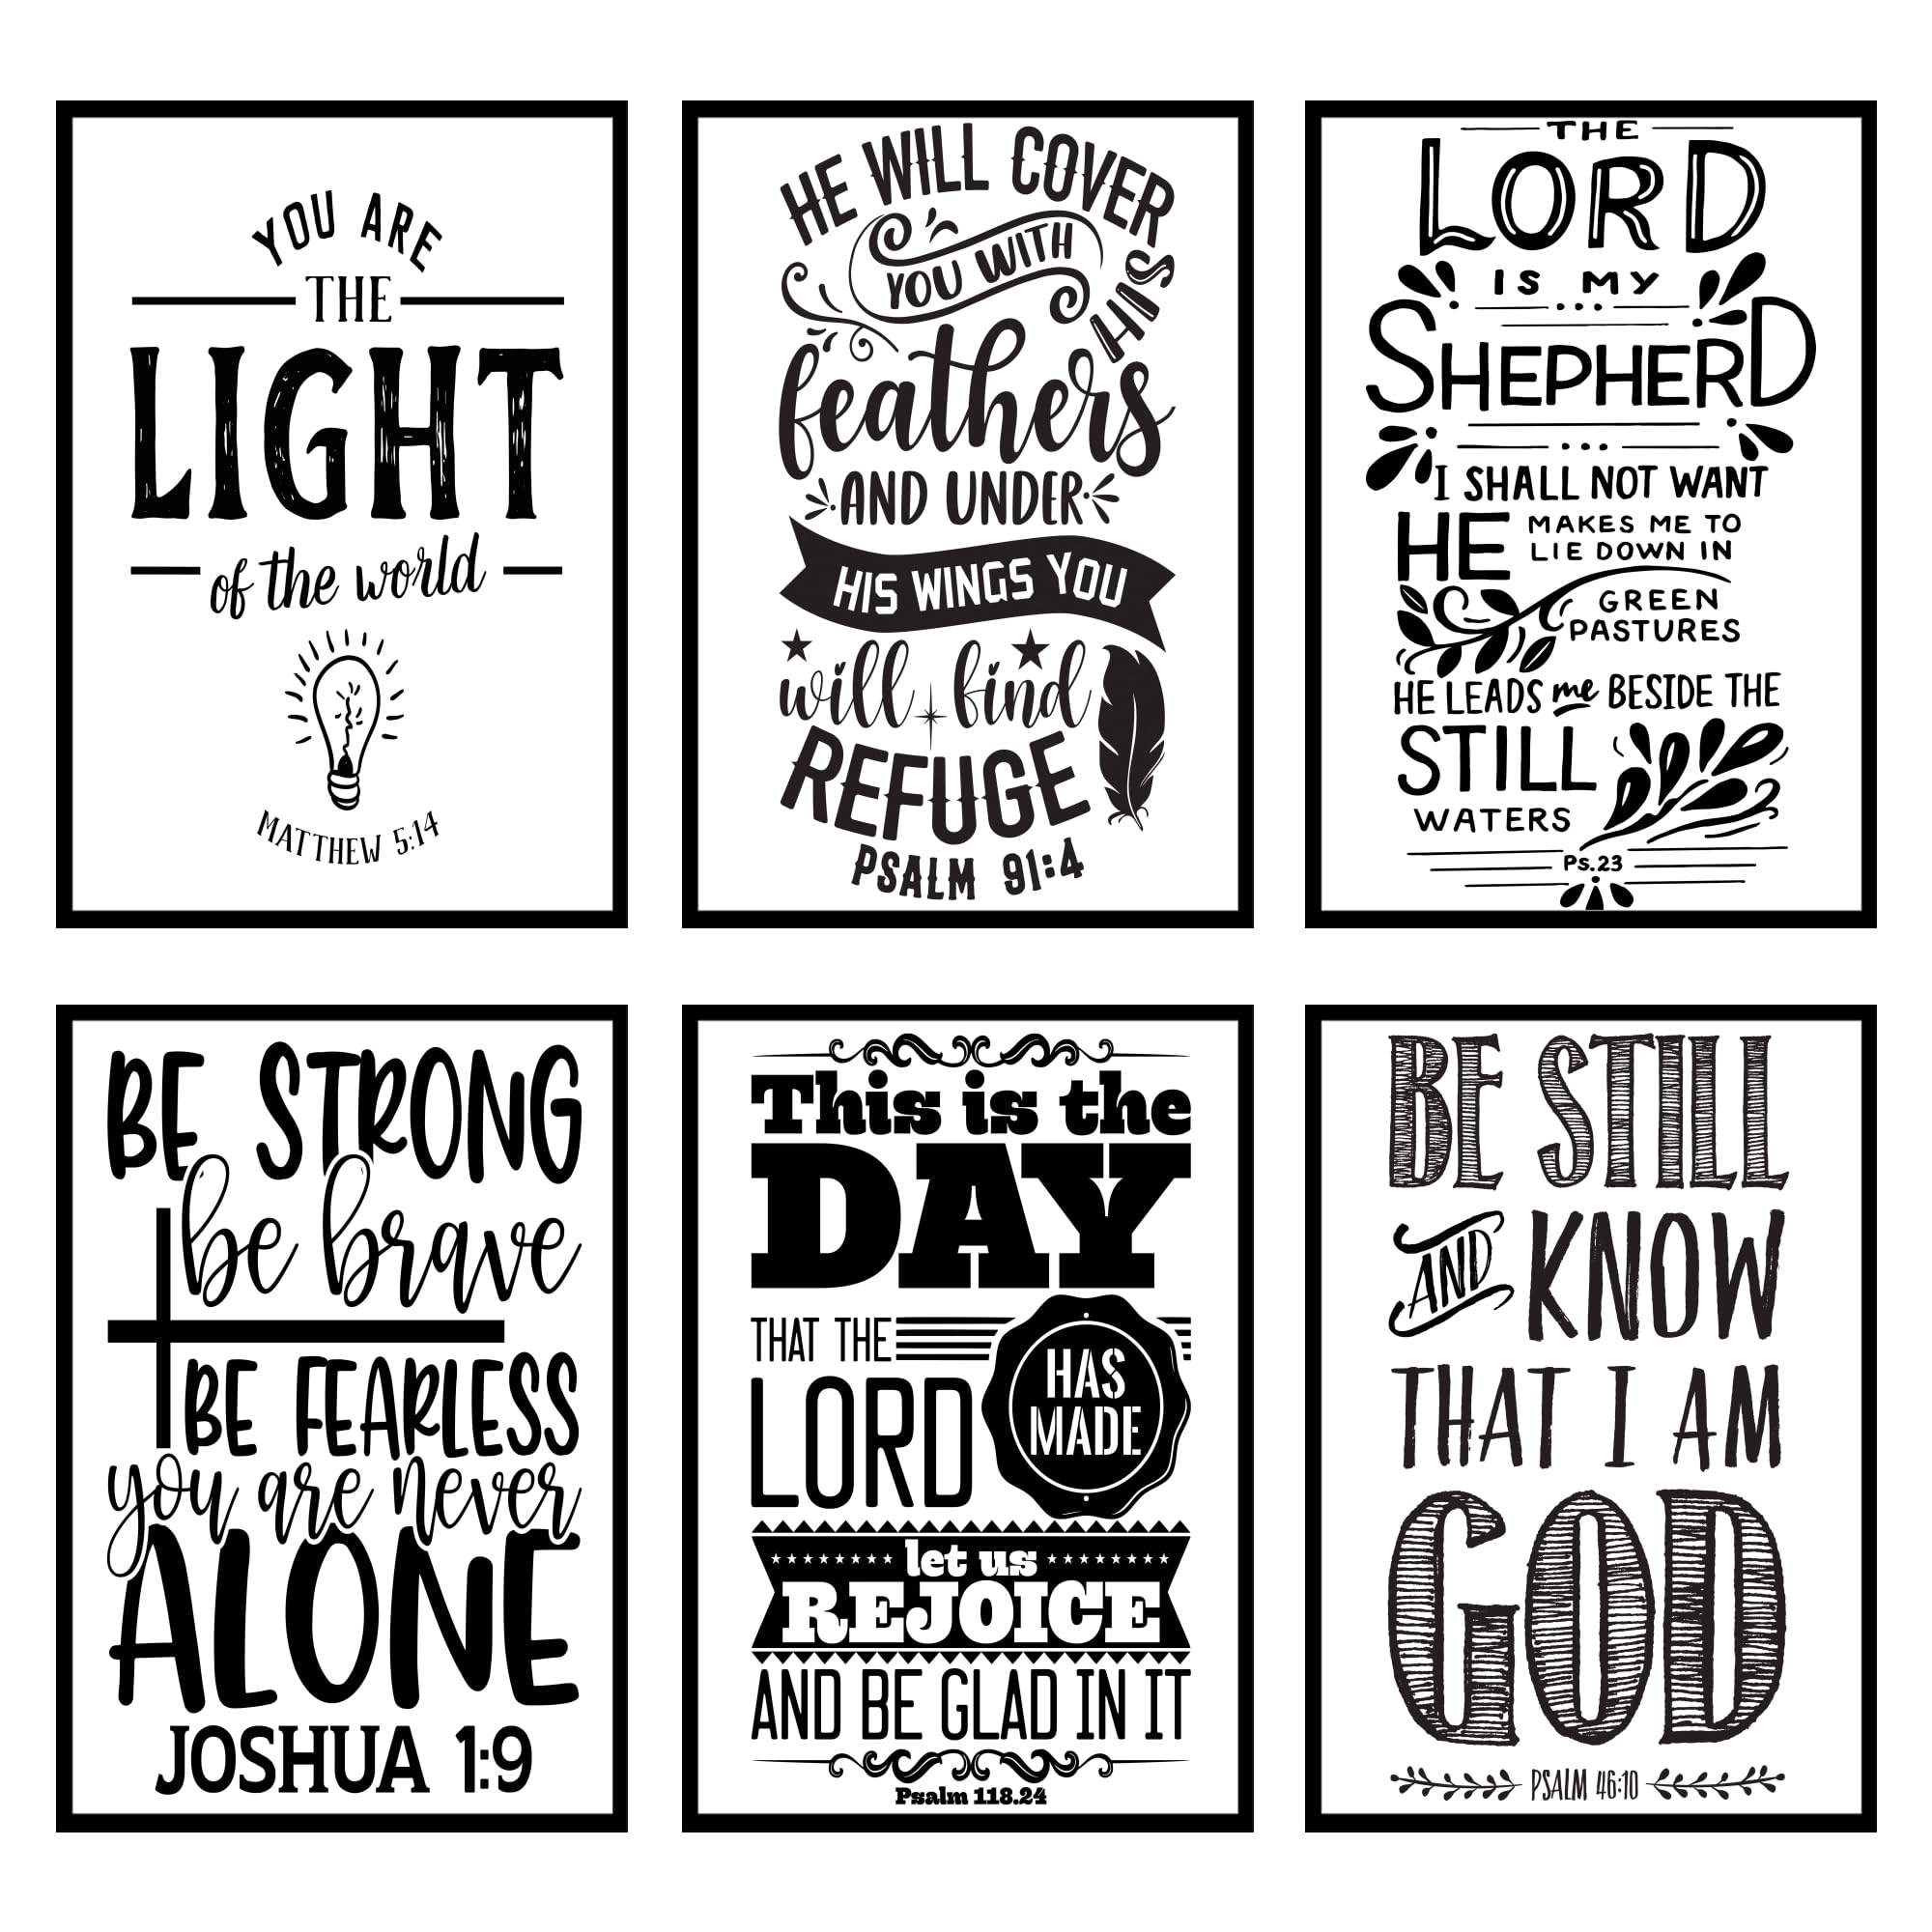 YOU ARE
THE
LIGHT
of the world
MATTHEW 5:14
HE WILL COVER
YOU WITH
HIS
feathers
AND UNDER
HIS WINGS YOU
will find
REFUGE
PSALM 91:4
THE
LORD
IS MY
SHEPHERD
I SHALL NOT WANT
HE MAKES ME TO
LIE DOWN IN
GREEN
PASTURES
HE LEADS me BESIDE THE
STILL
WATERS
Ps.23
BE STRONG
be brave
BE FEARLESS
you are never
ALONE
JOSHUA 1:9
This is the
DAY
THAT THE
LORD
HAS
MADE
let us
REJOICE
AND BE GLAD IN IT
Psalm 118.24
BE STILL
AND KNOW
THAT I AM
GOD
PSALM 46:10